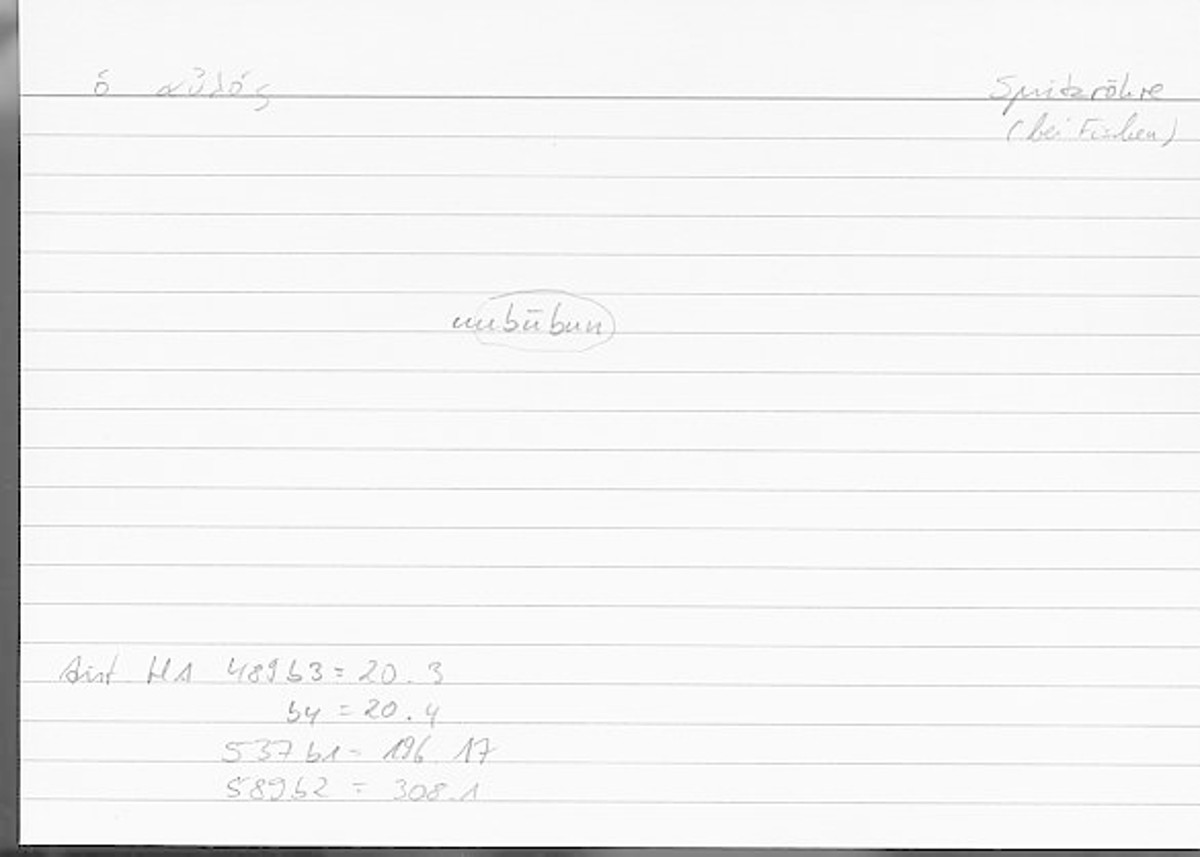 ὁ αὐλός
Spritzröhre
(bei Fischen)
unbūbun
Arist HA 489b3 = 20.3
b4 = 20.4
537b1 = 196.17
589b2 = 308.1